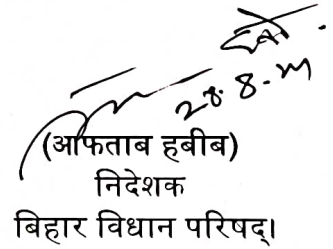 28.8.24
(आफताब हबीब)
निदेशक
बिहार विधान परिषद्।